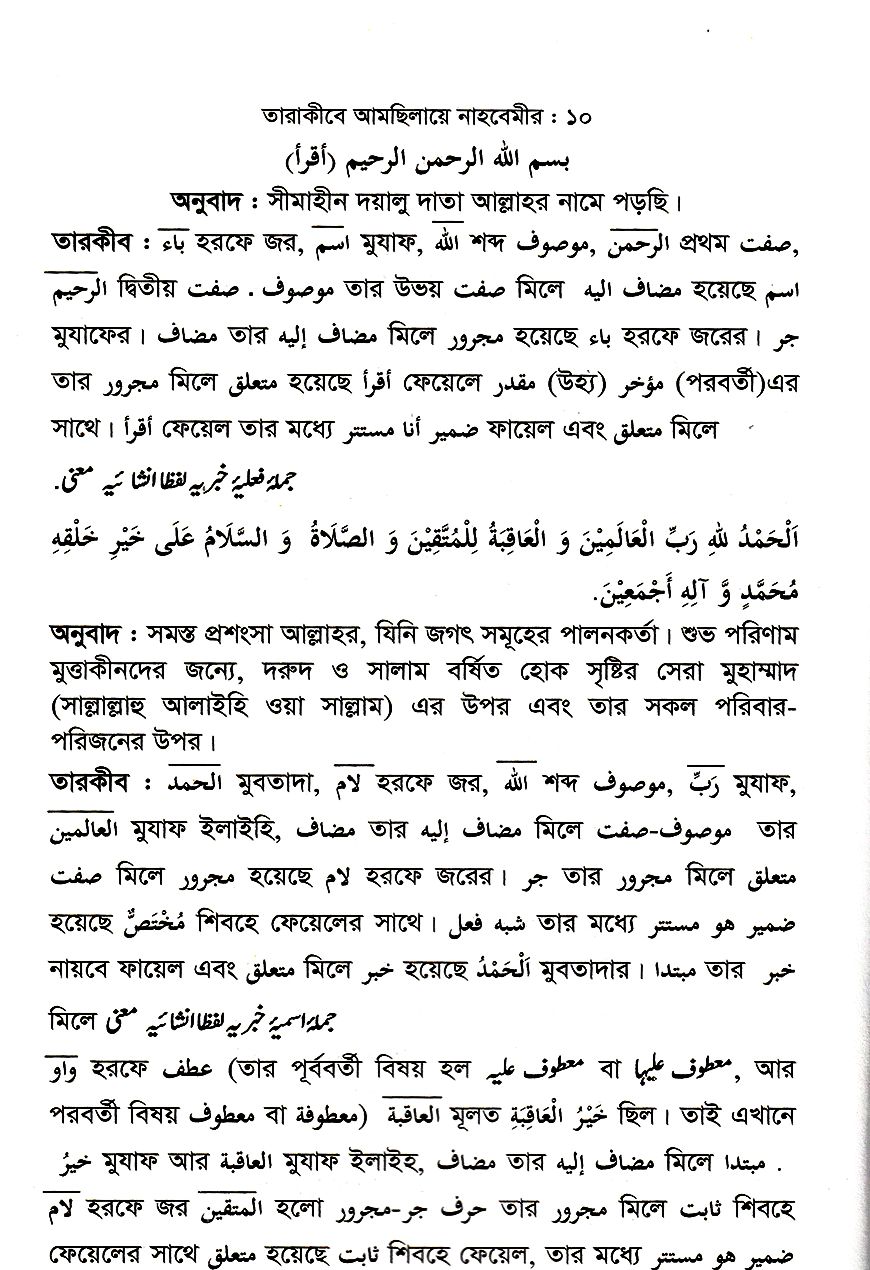 তারাকীবে আমছিলায়ে নাহবেমীর : ১০
بسم الله الرحمن الرحيم (أقرأ)
অনুবাদ : সীমাহীন দয়ালু দাতা আল্লাহর নামে পড়ছি।
তারকীব : باء হরফে জর, اسم মুযাফ, الله শব্দ موصوف, الرحمن প্রথম صفت,
الرحيم দ্বিতীয় صفت . موصوف তার উভয় صفت মিলে مضاف اليه হয়েছে اسم
মুযাফের। مضاف তার مضاف إليه মিলে مجرور হয়েছে باء হরফে জরের। جر
তার مجرور মিলে متعلق হয়েছে أقرأ ফেয়েলে مقدر (উহ্য) مؤخر (পরবর্তী)এর
সাথে। أقرأ ফেয়েল তার মধ্যে ضمير أنا مستتر ফায়েল এবং متعلق মিলে
جملۂ فعلیۂ خبریہ لفظا انشائیہ معنی.
اَلْحَمْدُ لِلهِ رَبِّ الْعَالَمِيْنَ وَ الْعَاقِبَةُ لِلْمُتَّقِيْنَ وَ الصَّلَاةُ وَ السَّلَامُ عَلَى خَيْرِ خَلْقِهِ
مُحَمَّدٍ وَّ آلِهِ أَجْمَعِيْنَ.
অনুবাদ : সমস্ত প্রশংসা আল্লাহর, যিনি জগৎ সমূহের পালনকর্তা। শুভ পরিণাম
মুত্তাকীনদের জন্যে, দরুদ ও সালাম বর্ষিত হোক সৃষ্টির সেরা মুহাম্মাদ
(সাল্লাল্লাহু আলাইহি ওয়া সাল্লাম) এর উপর এবং তার সকল পরিবার-
পরিজনের উপর।
তারকীব : الحمد মুবতাদা, لام হরফে জর, الله শব্দ موصوف, رَبِّ মুযাফ,
العالمين মুযাফ ইলাইহি, مضاف তার مضاف إليه মিলে موصوف-صفت তার
صفت মিলে مجرور হয়েছে لام হরফে জরের। جر তার مجرور মিলে متعلق
হয়েছে مُخْتَصٌّ শিবহে ফেয়েলের সাথে। شبه فعل তার মধ্যে ضمير هو مستتر
নায়বে ফায়েল এবং متعلق মিলে خبر হয়েছে اَلْحَمْدُ মুবতাদার। مبتدا তার خبر
মিলে جملۂ اسمیۂ خبریہ لفظا انشائیہ معنی
واو হরফে عطف (তার পূর্ববর্তী বিষয় হল معطوف عليه বা معطوف عليها, আর
পরবর্তী বিষয় معطوف বা معطوفة) العاقبة মূলত خَيْرُ الْعَاقِبَةِ ছিল। তাই এখানে
خيرُ মুযাফ আর العاقبة মুযাফ ইলাইহ, مضاف তার مضاف إليه মিলে مبتدا .
لام হরফে জর المتقين হলো حرف جر-مجرور তার مجرور মিলে ثابت শিবহে
ফেয়েলের সাথে متعلق হয়েছে ثابت শিবহে ফেয়েল, তার মধ্যে ضمير هو مستتر